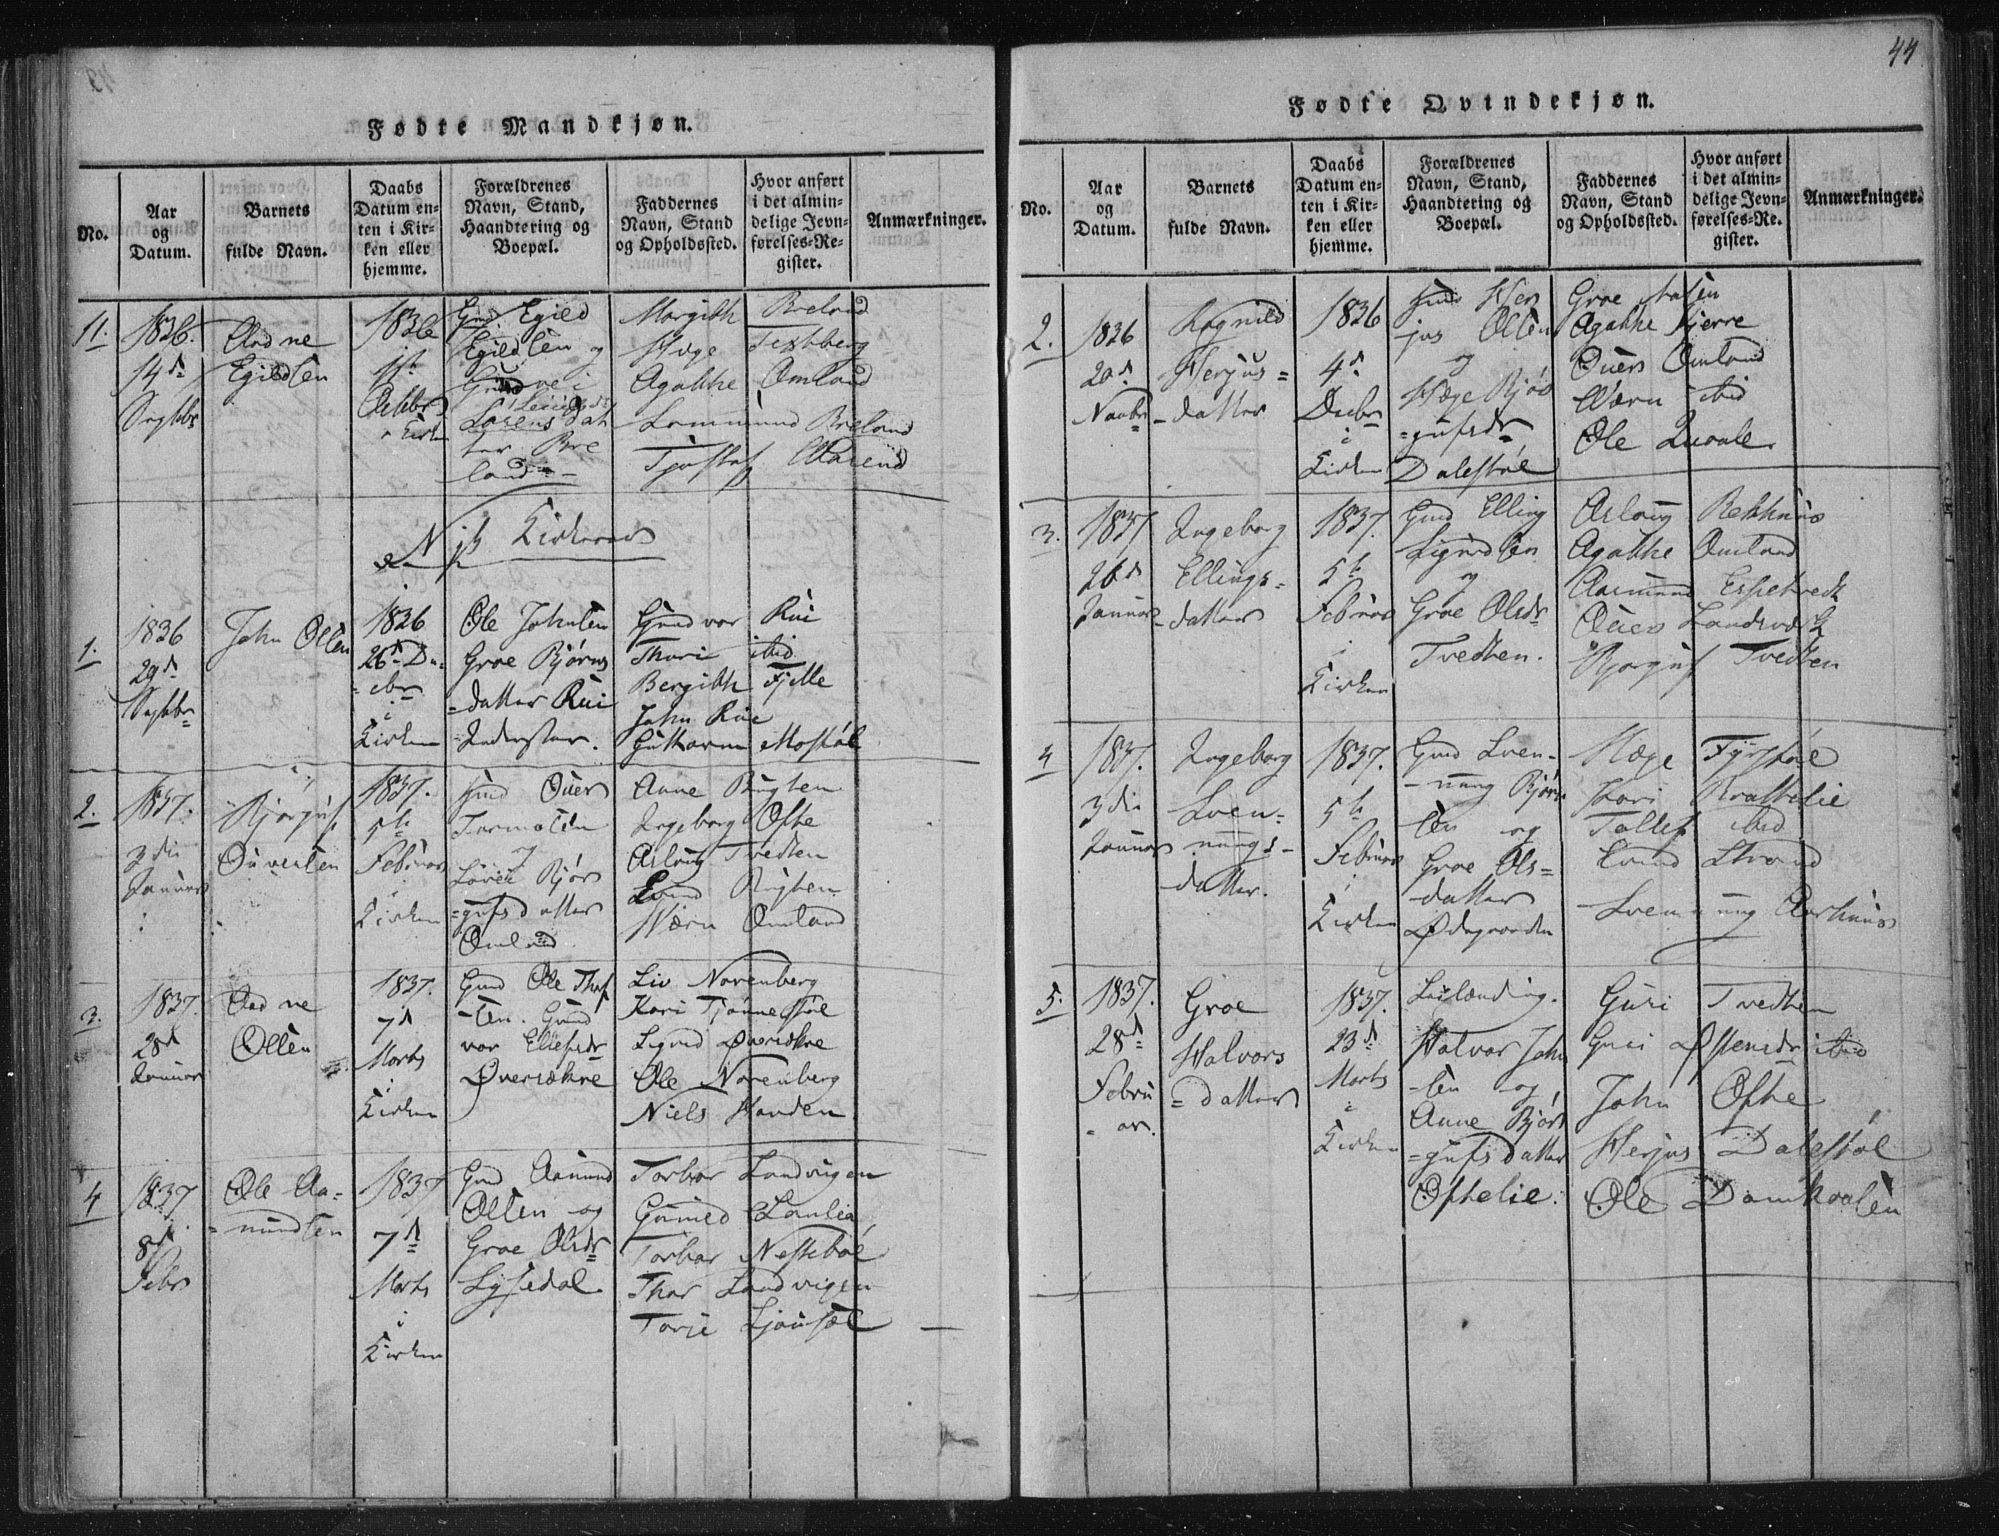 Fødte Mandkjøn.
No.
Aar
og
Datum.
Barnets
fulde Navn.
Daabs
Datum en-
ten i Kir-
ken eller
hjemme.
Forældrenes
Navn, Stand,
Haandtering og
Boepæl.
Faddernes
Navn, Stand
og Opholdssted.
Hvor anført
i det almin-
delige Jevn-
førelses-Re-
gister.
Anmærkninger.
11.
1836.
14d
Septbr
Aadne
Egildsen
1836
Octbr
i Kirken
Gmd Egild
Egildsen og
Lorensdat
ter Bre
land
Margith Breland
Hæge Textberg
Agathe Omland
Sommund Breland
Tjostaf
Nyt Kirkeaar
1.
1836
29d
Septbr
John Olsen
1826
26d De-
cbr
i
Kirken
Ole Johnsen
Groe Bjørns
datter Rui
Inderster.
Gundvor Rui
Thori ibid
Bergith Fjelle
John Rue
Guttorm Mostøl
2.
1837.
3die
Januar
Bjørguf
Ouversen
1837.
5te
Februar
i
Kirken
Gmd Ouver
Tarmosen
og
Bjør
gufsdatter
Omland
Anne Rugten
Ingeborg Ofte
Aslaug Tvedten
Evind Rugten
Værn Omland
3.
1837.
28d
Januar
Aadne
Olsen
1837.
7d
Marts
i
Kirken
Gmd Ole Thof
sen. Gund
vor Ellefsdr
Øverøkre
Liv Norenberg
Kari Tjønnestøl
Sigrid Øverøkre
Ole Norenberg
Niels Handen.
4
1837
8d
Febr
Ole Aa-
mundsen
1837
7d
Marts
i
Kirken
Gmd Aamund
Olsen og
Groe Olsdr
Lysedal.
Torbor Landvigen
Gunild Lonlia
Torbor Nessebøe
Thor Landvigen
Torje Ljousøl
44
Fødte Qvindekjøn.
No.
Aar
og
Datum.
Barnets
fulde Navn.
Daabs
Datum en-
ten i Kir-
ken eller
hjemme.
Forældrenes
Navn, Stand,
Haandtering og
Boepæl.
Faddernes
Navn, Stand
og Opholdssted.
Hvor anført
i det almin-
delige Jevn-
førelses-Re-
gister.
Anmærkninger.
2.
1836
20d
Novbr
Ragnild
Herjus-
datter
1836
4d
Decbr
i
Kirken
Gmd Her
jus Olsen
og
Hæge Bjør
gufsdr
Dalestøl
Groe Aasen
Agathe Kjerre
Ouers Omland
Værn ibid
Ole Qvaale
3.
1837
26d
Januar
Ingeborg
Ellings-
datter
1837.
5te
Februar
i
Kirken
Gmd Elling
Sigridsen
og
Groe Olsdr
Tvedten.
Aslaug Rekhuus
Agathe Omland
Aasmund Espetvedt
Ouers Landsværk
Bjørguf Tvedten
4
1837.
3die
Januar
Ingeborg
Sven-
nungs-
datter.
1837.
5te
Februar
i
Kirken
Gmd Sven-
nung Bjørn
sen og
Groe Ols-
datter
Ødegaarden
Hæge Fyrstøl
Kari Brattelie
Tollef ibid
Evind Strand
Svennung Aarhuus
5.
1837.
28d
Febru
ar.
Groe
Halvors
datter
1837.
23d
Marts
i
Kirken
Leilænding.
Halvor John
sen og
Anne Bjør
gufsdatter
Oftelie.
Guri Tvedten
Guri Østensdr ibid
John Ofte
Herjus Dalestøl
Ole Damkaasen